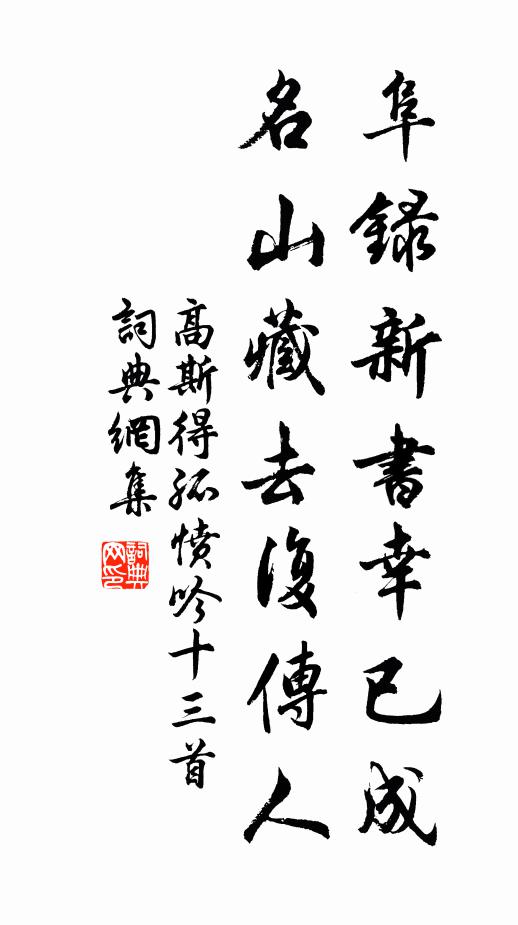 阜錄新書幸已成
名山藏去復傳人
高斯得孤憤吟十三首
詞典網集
詞典網印